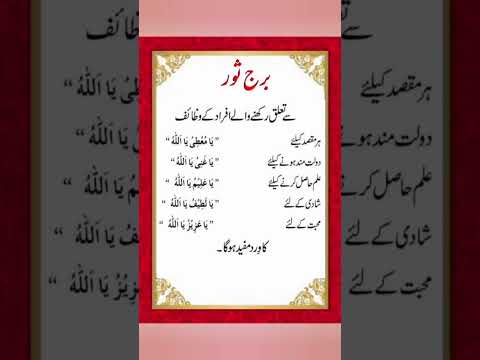 برج ثور
سے تعلق رکھنے والے افراد کے وظائف
ہر مقصد کیلئے ”یَا مُعْطِیُ یَا اَللّٰهُ“
دولت مند ہونے کیلئے ”یَا غَنِیُ یَا اَللّٰهُ“
علم حاصل کرنے کیلئے ”یَا عَلِیْمُ یَا اَللّٰهُ“
شادی کے لئے ”یَا لَطِیْفُ یَا اَللّٰهُ“
محبت کے لئے ”یَا عَزِیْزُ یَا اَللّٰهُ“
کا ورد مفید ہوگا۔